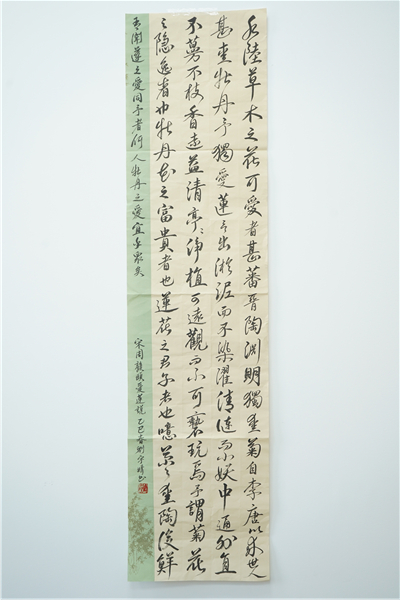 水陸草木之花可愛者甚蕃晋陶渊明獨爱菊自李唐以来世人
甚爱牡丹予獨愛蓮之出淤泥而不染濯清涟而不妖中通外直
不蔓不枝香遠益清亭亭净植可遠觀而不可亵玩焉予謂菊花
之隐逸者也牡丹花之富貴者也蓮花之君子者也噫菊之爱陶後鮮
有闻蓮之愛同予者何人牡丹之愛宜乎眾矣
宋周敦颐爱蓮說乙巳春刘宇晴书